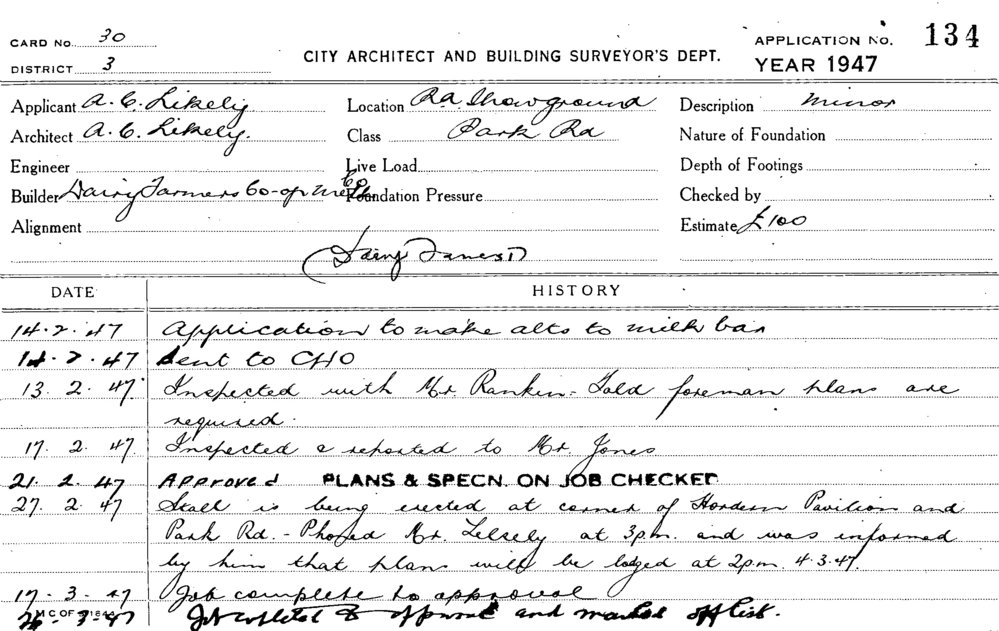 CARD No. 30
DISTRICT 3
CITY ARCHITECT AND BUILDING SURVEYOR'S DEPT.
APPLICATION No. 134
YEAR 1947
Applicant A. C. Likely Location R.A. Showground Description minor
Architect A. C. Likely. Class Park Rd Nature of Foundation
Engineer Live Load Depth of Footings
Builder Dairy Farmers Co-op Foundation Pressure Checked by
Alignment Estimate £100
(Dairy
DATE HISTORY
14.2.47 Application to make alts to milk bar
14.2.47 Sent to CHO
13.2.47. Inspected with Mr. Rankin - Told foreman plans are
required.
17.2.47. Inspected & reported to Mr. Jones
21.2.47 Approved PLANS & SPECN. ON JOB CHECKED
27.2.47 Stall is being erected at corner of Hordern Pavilion and
Park Rd. - Phoned Mr. at 3pm. and was informed
by him that plans will be lodged at 2pm. 4.3.47.
17.3.47 Job complete to approval
3.47 Job completed to approval and marked off list.